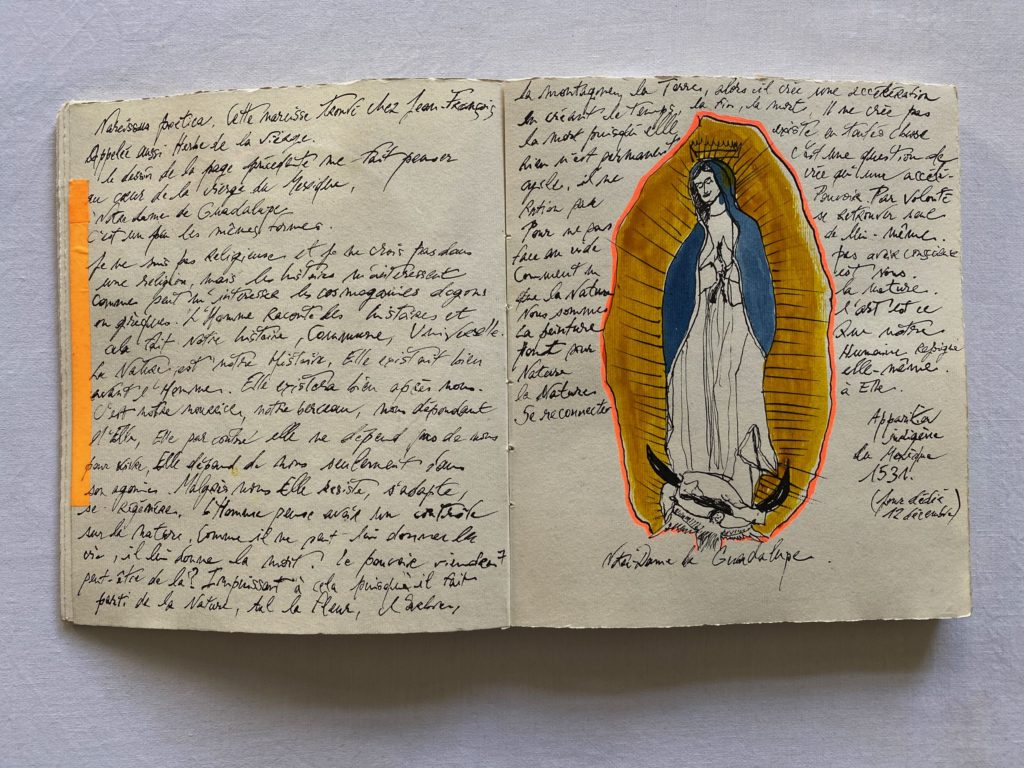 Narcissus poetica. Cette narcisse trouvé chez Jean-François
Appelée aussi Herbe de la vierge.
le dessin de la page précédente me fait penser
au cœur de la vierge du Mexique,
Notre dame de Guadalupe
C'est un peu les mêmes formes.
Je ne suis pas religieuse et je ne crois pas dans
une religion, mais les histoires m'intéressent
comme peut m'intéresser les cosmogonies dogons
ou grecques. L'Homme raconte des histoires et
cela fait Notre histoire, Commune, Universelle.
La Nature est notre Histoire, Elle existait bien
avant l'Homme. Elle existera bien après nous.
C'est notre nourrice, notre berceau, nous dépendons
d'Elle, Elle par contre elle ne dépend pas de nous
pour vivre, Elle dépend de nous seulement dans
son agonie. Malgrés nous Elle résiste, s'adapte,
se régénère. L'Homme pense avoir un contrôle
sur la nature, comme il ne peut lui donner la
vie, il lui donne la mort? le pouvoir viendrait
peut-être de là? Impuissant à cela puisqu'il fait
parti de la Nature, tel la fleur, l'arbre,
la montagne, la Terre, alors il crée une accélération
en créant le temps, la fin, la mort. Il ne crée pas
la mort puisqu'elle existe en toutes chose
Rien n'est permanent C'est une question de
cycle, il ne crée qu'une accélé-
ration par Pouvoir. Par volonté
Pour ne pas se retrouver seul
face au vide de lui-même.
Comment ne pas avoir conscience
que la Nature c'est Nous.
Nous sommes la nature.
la peinture l'art est ce
font pour que notre
Nature Humaine rejoigne
la Nature elle-même.
Se reconnecter à Elle.
Apparition
indigène
du Mexique
1531.
(jour dédié
12 décembre)
Notre-Dame de Guadalupe.